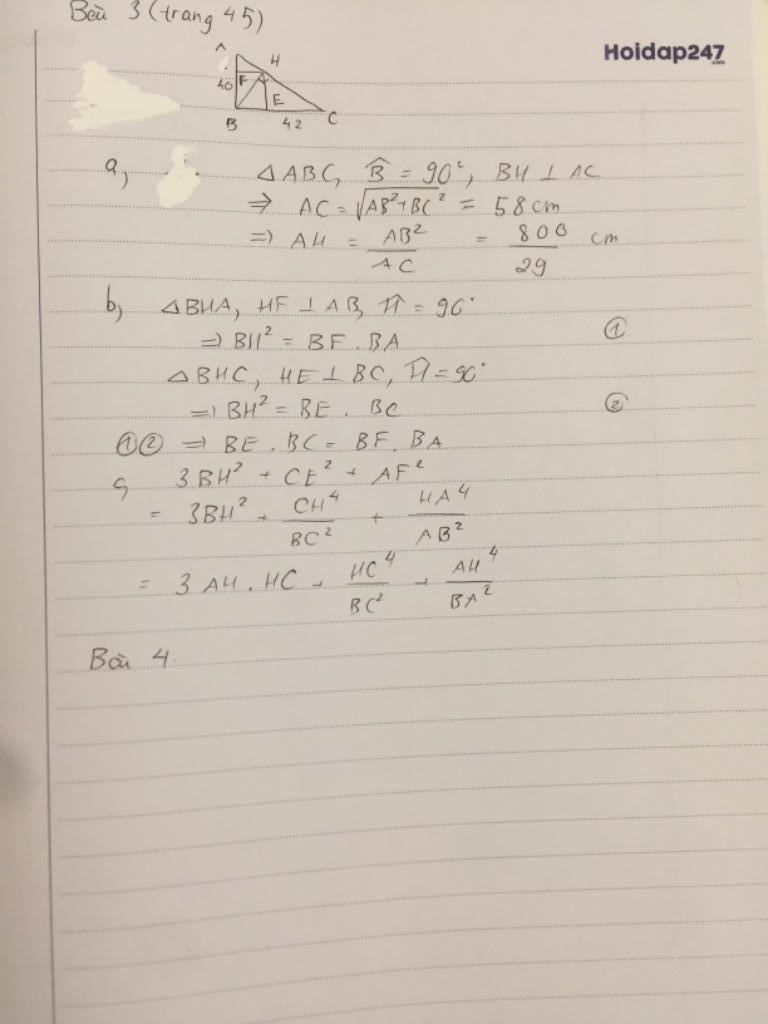 Bài 3 (trang 45)
Hoidap247
.com
A
H
40
F
E
B
42
C
a,
△ABC, B̂ = 90°, BH ⊥ AC
⇒ AC = √(AB² + BC²) = 58cm
⇒ AH = AB²/AC = 800/29 cm
b, △BHA, HF ⊥ AB, Ĥ = 90°
⇒ BH² = BF . BA ①
△BHC, HE ⊥ BC, Ĥ = 90°
⇒ BH² = BE . BC ②
①② ⇒ BE . BC = BF . BA
c, 3BH² + CE² + AF²
= 3BH² + CH⁴/BC² + HA⁴/AB²
= 3 AH . HC + HC⁴/BC² + AH⁴/BA²
Bài 4.